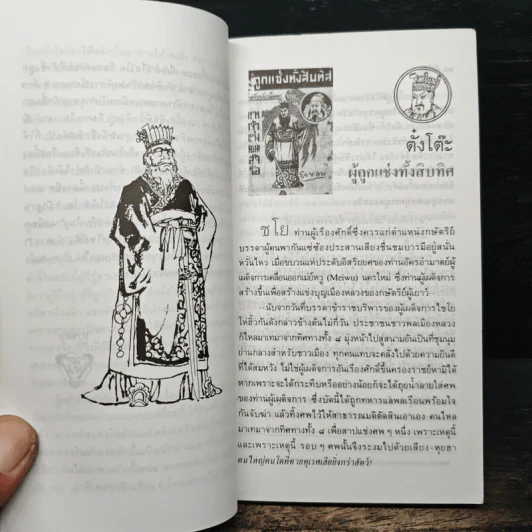 ผู้ถูกแช่งทั้งสิบทิศ
ตั๋งโต๊ะ
ผู้ถูกแช่งทั้งสิบทิศ
ชโย ท่านผู้เรืองศักดิ์ซึ่งควรแก่ตำแหน่งกษัตริย์
บรรดาผู้คนพากันแซ่ซ้องประสานเสียงชื่นชมบารมีอยู่สนั่น
หวั่นไหว เมื่อขบวนแห่ประดับอิสริยยศของท่านอัครอำมาตย์ผู้
เผด็จการเคลื่อนออกเมี่ยหวู (Meiwu) นครใหม่ ซึ่งท่านผู้เผด็จการ
สร้างขึ้นเพื่อสร้างแข่งบุญเมืองหลวงของกษัตริย์ผู้เยาว์
นับจากวันที่บรรดาข้าราชบริพารของผู้เผด็จการไชโย
โห่ฮิ้วกันดังกล่าวข้างต้นไม่กี่วัน ประชาชนชาวพลเมืองหลวง
ก็ไหลมาเทมาจากทิศทางทั้ง ๘ มุ่งหน้าไปสู่สนามอันเป็นที่ชุมนุม
ย่านกลางสำหรับชาวเมือง ทุกคนแทบจะคลั่งไปด้วยความยินดี
ที่ได้สมหวัง ไม่ใช่ผู้เผด็จการอันเรืองศักดิ์ขึ้นครองราชย์หามิได้
หากเพราะจะได้กระทืบหรืออย่างน้อยก็จะได้ถุยน้ำลายใส่ศพ
ของท่านผู้เผด็จการ ซึ่งบัดนี้ได้ถูกทหารแล่พลเรือนพร้อมใจ
กันจับฆ่า แล้วทิ้งศพไว้ให้สาธารณมติตัดสินเอาเอง คนไหล
มาเทมาจากทิศทางทั้ง ๘ เพื่อสาปแช่งศพ ๆ หนึ่ง เพราะเหตุนี้
และเพราะเหตุนี้ รอบ ๆ ศพนั้นจึงระงมไปด้วยเสียง
คนใหญ่คนโตที่ตายทุเรศเสียยิ่งกว่าสัตว์!